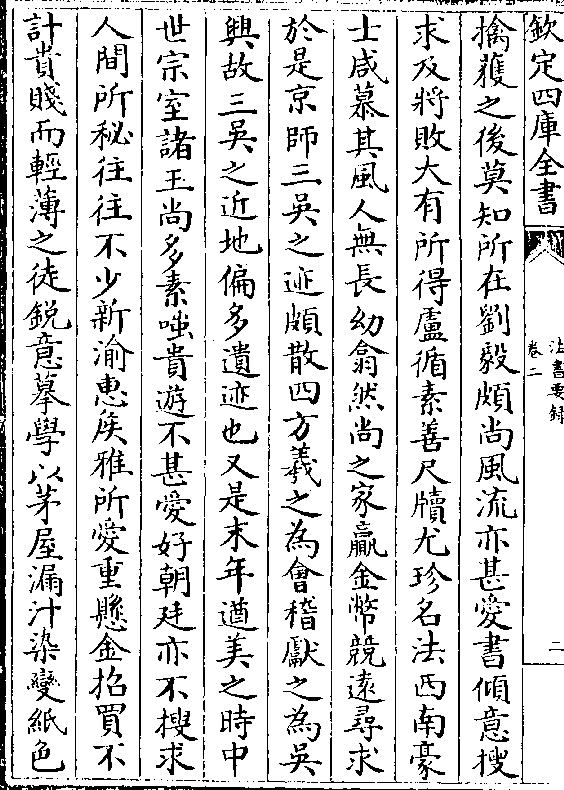 欽定四庫全書
法書要録
卷二
二
擒獲之後莫知所在劉毅頗尚風流亦甚愛書傾意搜
求及將敗大有所得盧循素善尺牘尤珍名法西南豪
士咸慕其風人無長幼翕然尚之家贏金幣競遠尋求
於是京師三吳之迹頗散四方羲之為會稽獻之為吳
興故三吳之近地偏多遺迹也又是末年遒美之時中
世宗室諸王尚多素嗤貴遊不甚愛好朝廷亦不搜求
人間所秘往往不少新渝惠侯雅所愛重懸金招買不
計貴賤而輕薄之徒銳意摹學以茅屋漏汁染變紙色